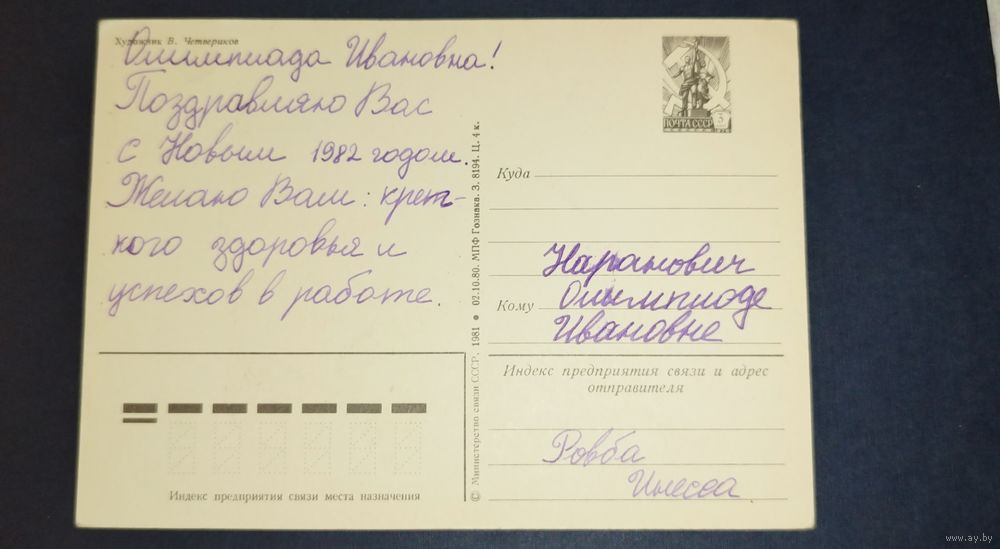 Художник В. Четвериков
Олимпиада Ивановна!
Поздравляю Вас
с Новым 1982 годом.
Желаю Вам: креп-
кого здоровья и
успехов в работе.
Индекс предприятия связи места назначения
© Министерство связи СССР, 1981 • 02.10.80. МПФ Гознака. З. 8194. Ц. 4 к.
ПОЧТА СССР 3
1976
Куда
Наранович
Кому Олимпиаде
Ивановне
Индекс предприятия связи и адрес
отправителя
Ровба
Инесса
www.ay.by